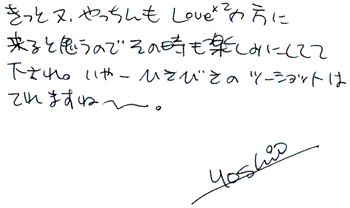 きっと又、やっちんも Love×2の方に
来ると思うのでその時も楽しみにしてて
下され。いやーひさびさのツーショットは
てれますね〜。
yoshio